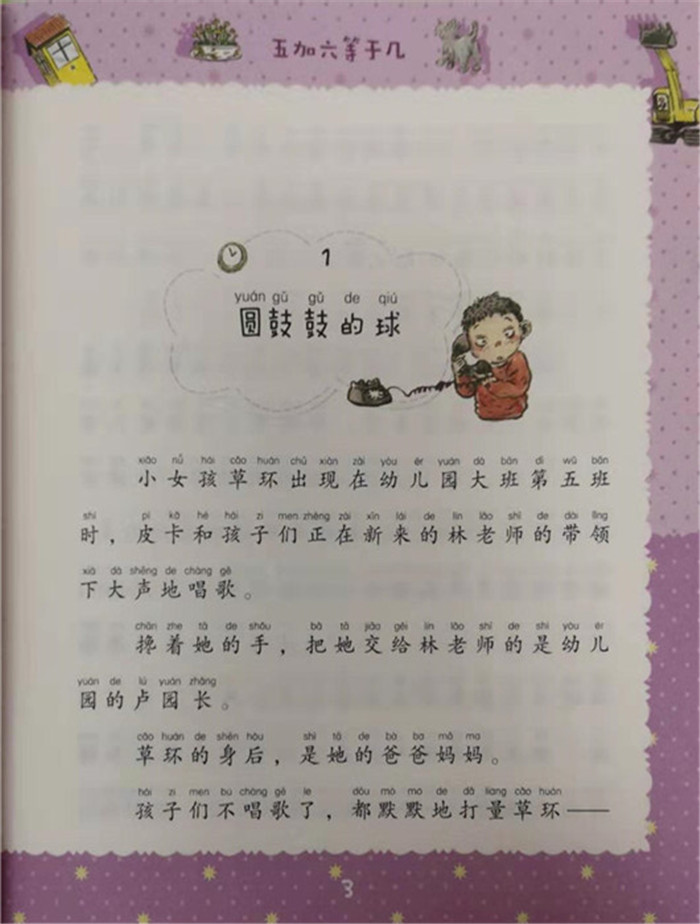 五加六等于几
1
yuán gǔ gǔ de qiú
圆鼓鼓的球
xiǎo nǚ hái cǎo huán chū xiàn zài yòu ér yuán dà bān dì wǔ bān
小女孩草环出现在幼儿园大班第五班
shí pí kǎ hé hái zi men zhèng zài xīn lái de lín lǎo shī de dài lǐng
时，皮卡和孩子们正在新来的林老师的带领
xià dà shēng de chàng gē
下大声地唱歌。
chān zhe tā de shǒu bǎ tā jiāo gěi lín lǎo shī de shì yòu ér
搀着她的手，把她交给林老师的是幼儿
yuán de lú yuán zhǎng
园的卢园长。
cǎo huán de shēn hòu shì tā de bà ba mā ma
草环的身后，是她的爸爸妈妈。
hái zi men bú chàng gē le dōu mò mò de dǎ liang cǎo huán
孩子们不唱歌了，都默默地打量草环——
3